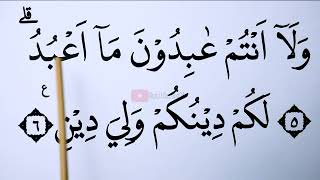 وَلَآ اَنْتُمْ عٰبِدُوْنَ مَآ اَعْبُدُ ۗ
٥ لَكُمْ دِيْنُكُمْ وَلِيَ دِيْنِ ٦ ع